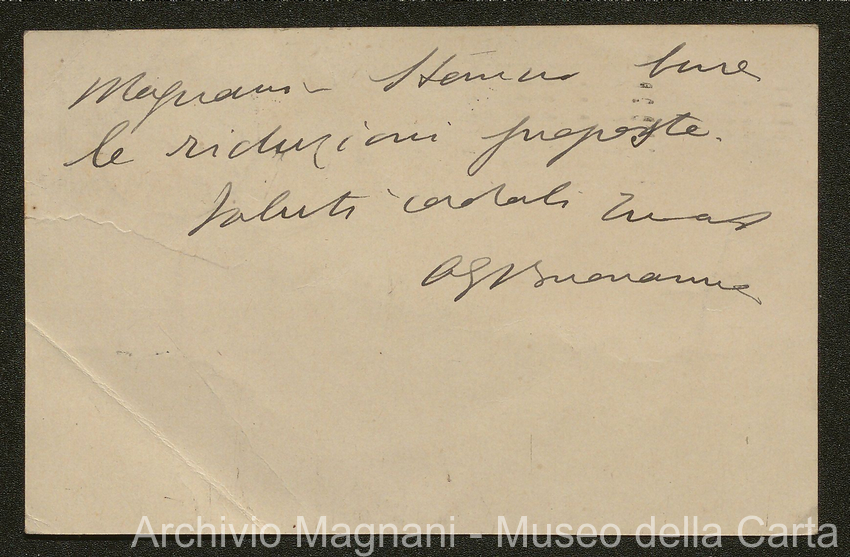 Magnani - Stanno bene
le riduzioni proposte.
Saluti cordiali
Buonanno
Archivio Magnani - Museo della Carta